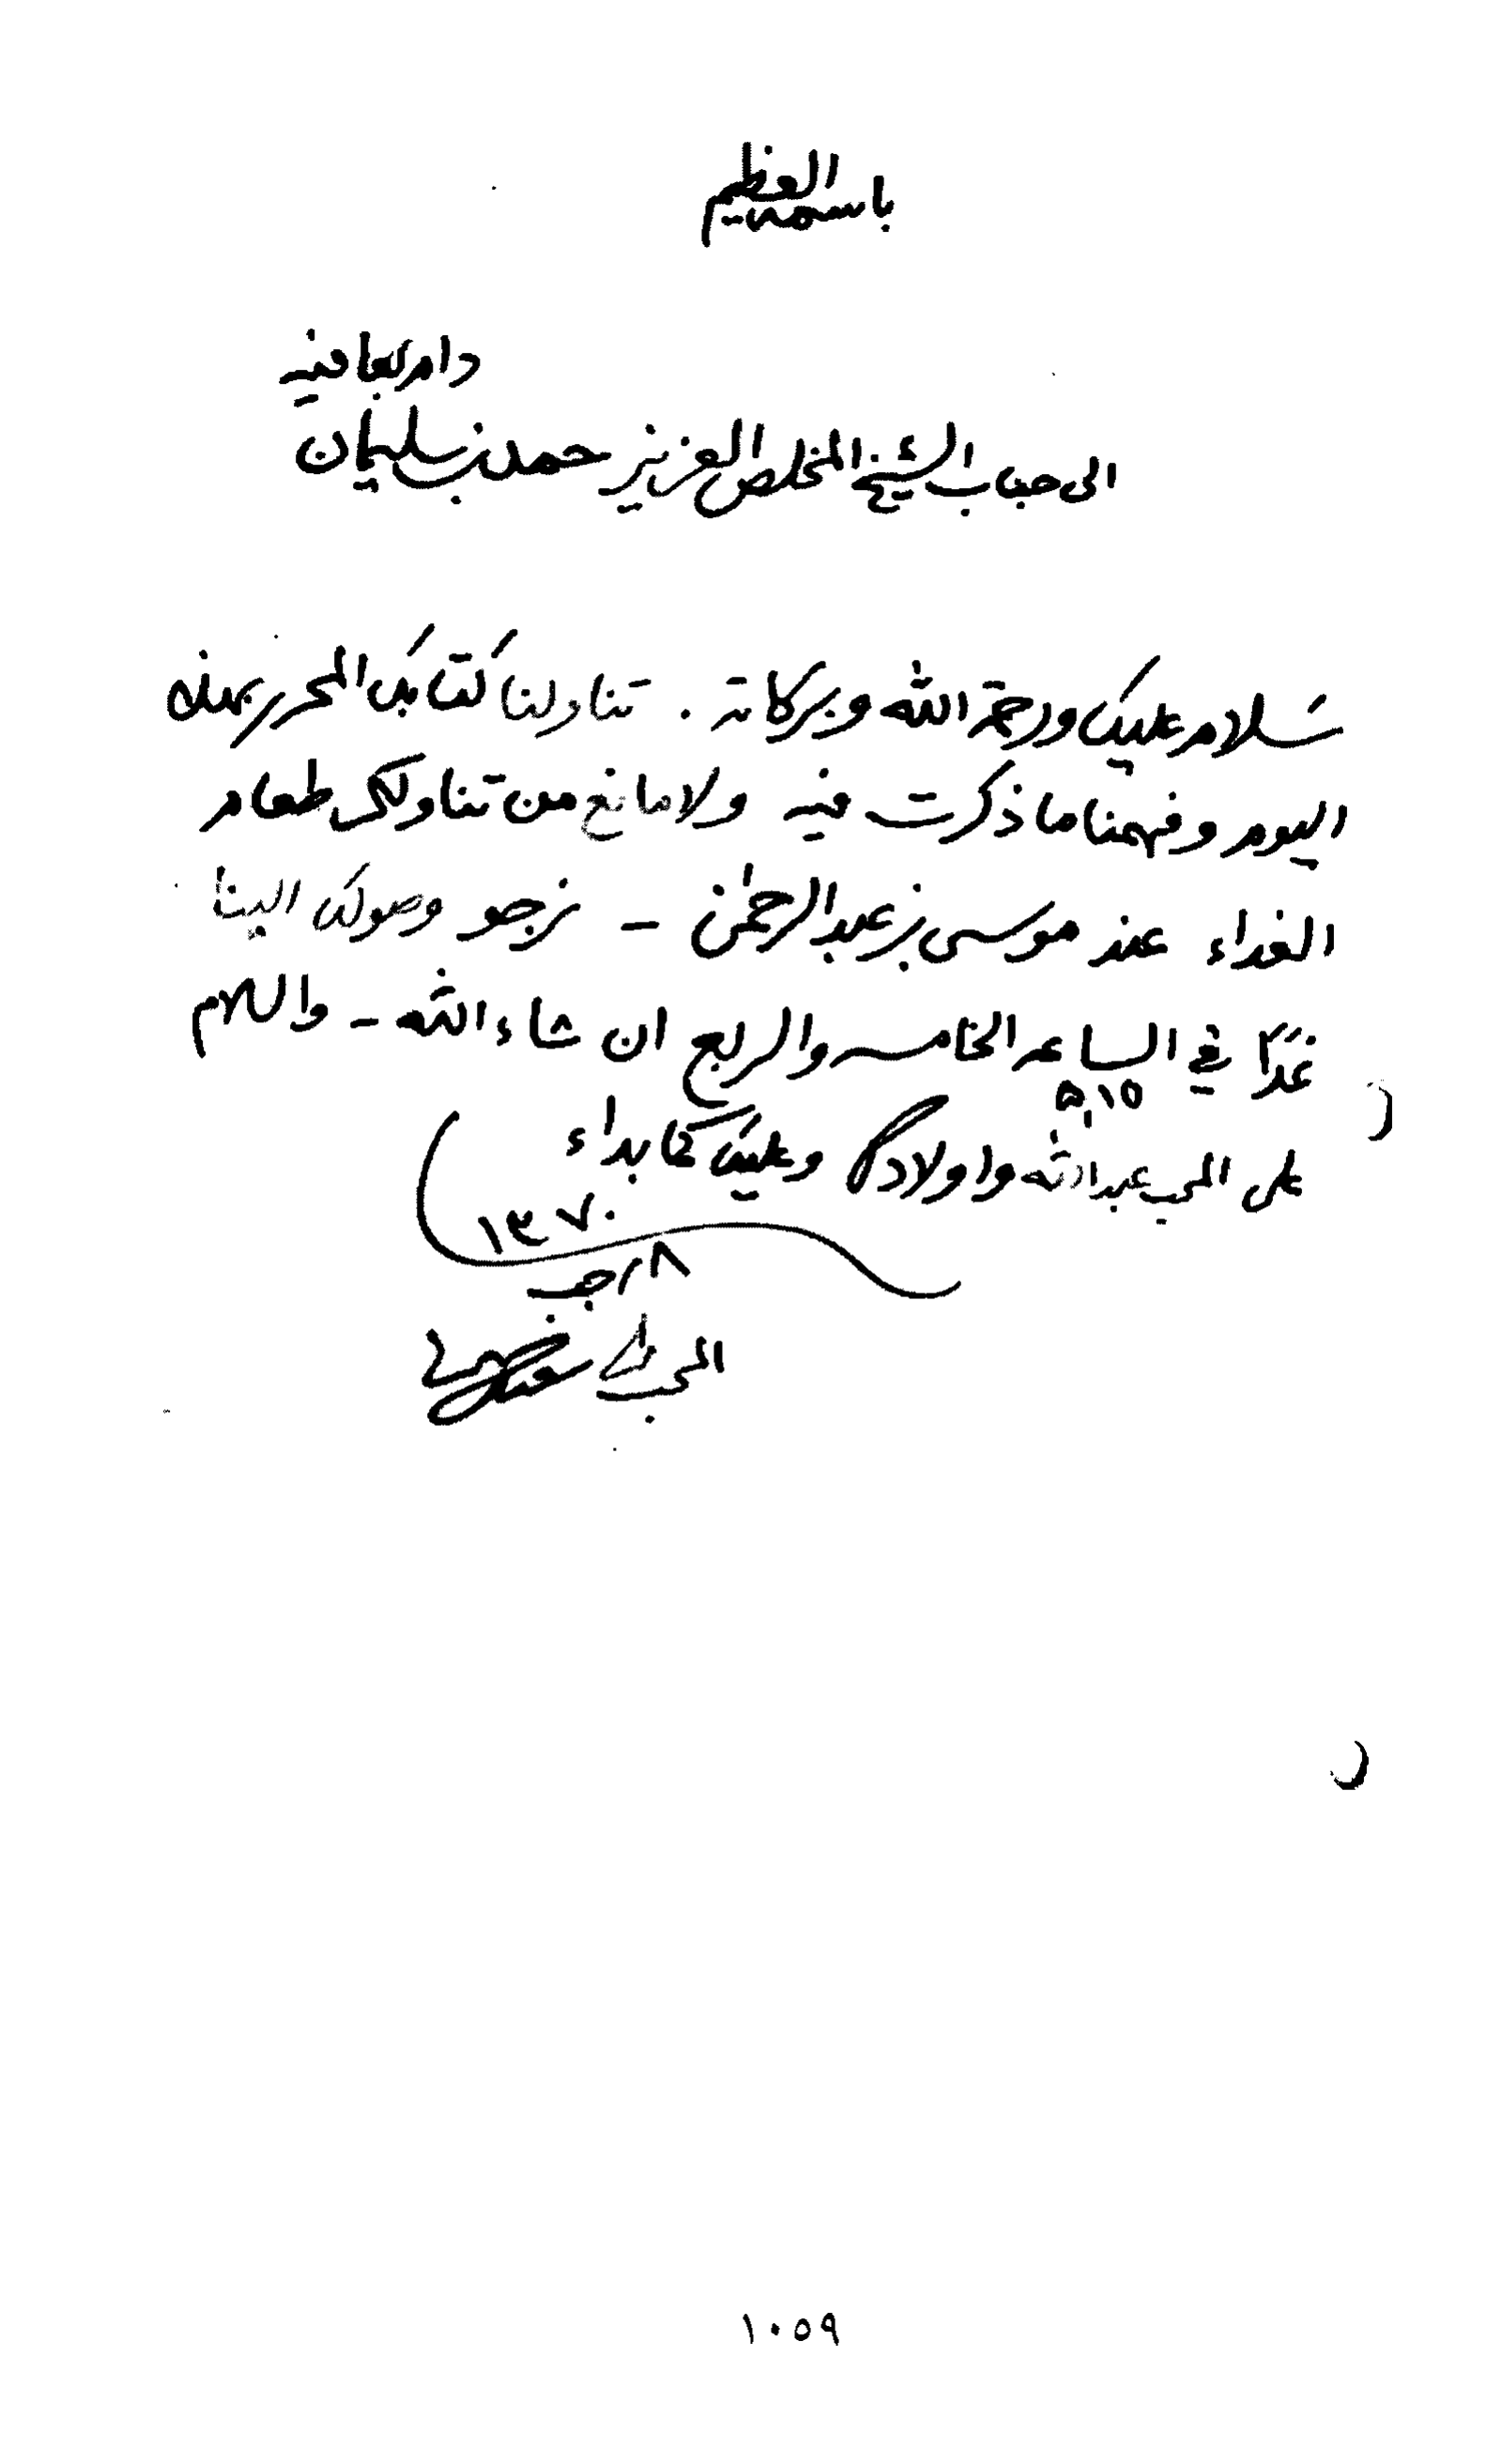 باسمه العظيم
دام بالعافيه
الى جناب الشيخ المخلص العزيز حمد بن سليمان
سلام عليك ورحمة الله وبركاته . تناولنا كتابك المحرر بهذه
اليوم وفهمنا ما ذكرت فيه ولا مانع من تناولك طعام
الغداء عند موسى بن عبدالرحمٰن - نرجو وصولك الينا
غدًا في الساعه الخامسه والربع ان شاء الله - والسلام
٥،١٥
على المحب عبدالله واولادك وعليك كما بداء
١٣٧٠
٨ رجب
المحب
١٠٥٩